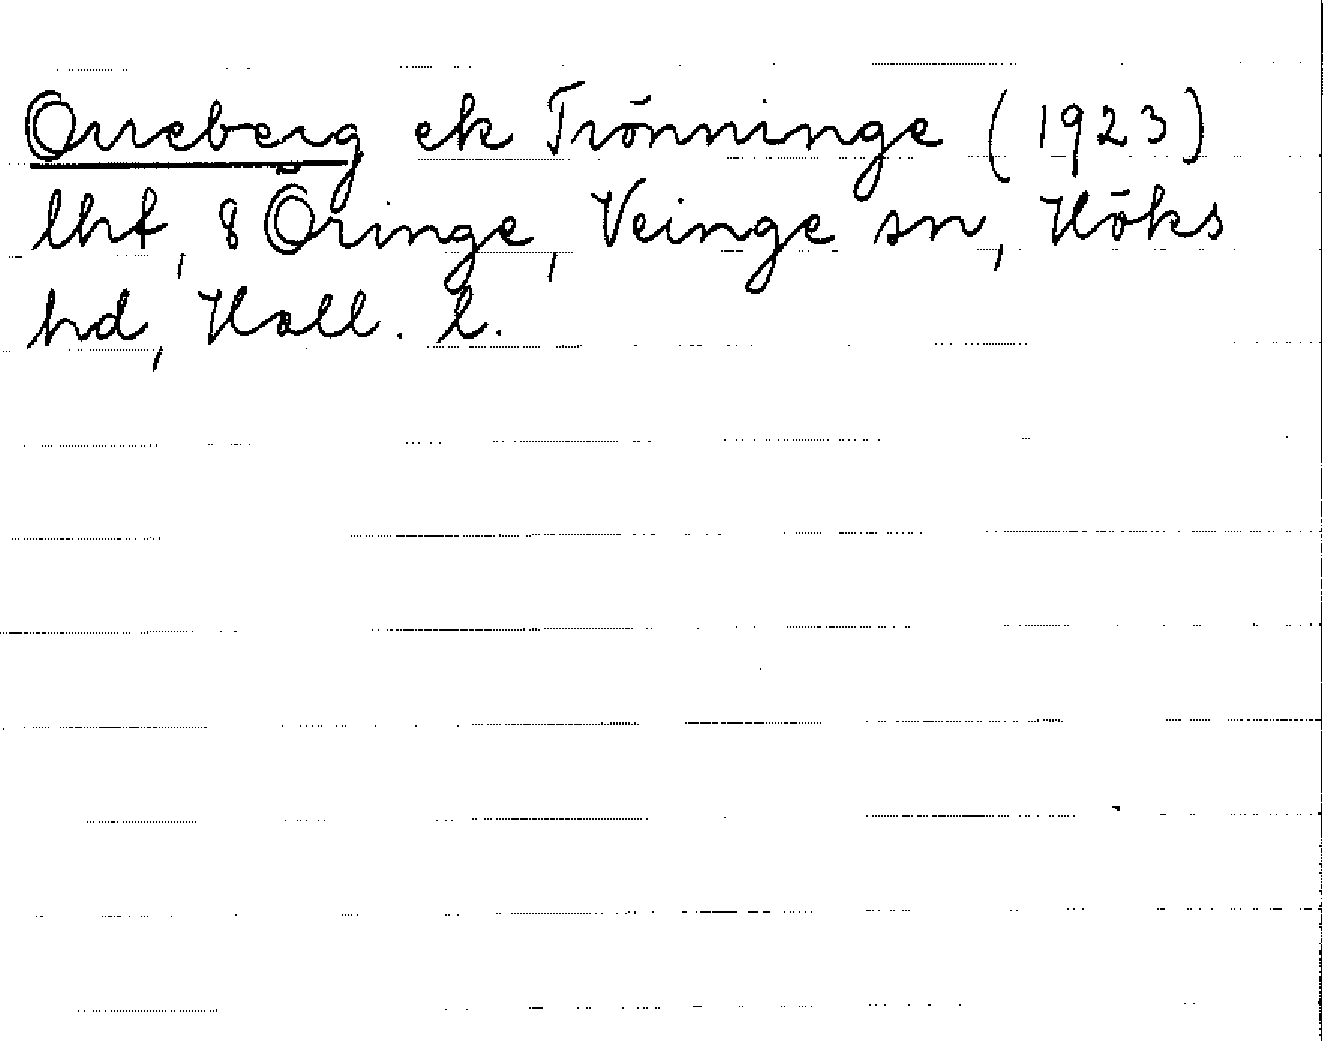 Orreberg ek Trönninge (1923)
lht, 8 Öringe, Veinge sn, Höks
hd, Hall. l.